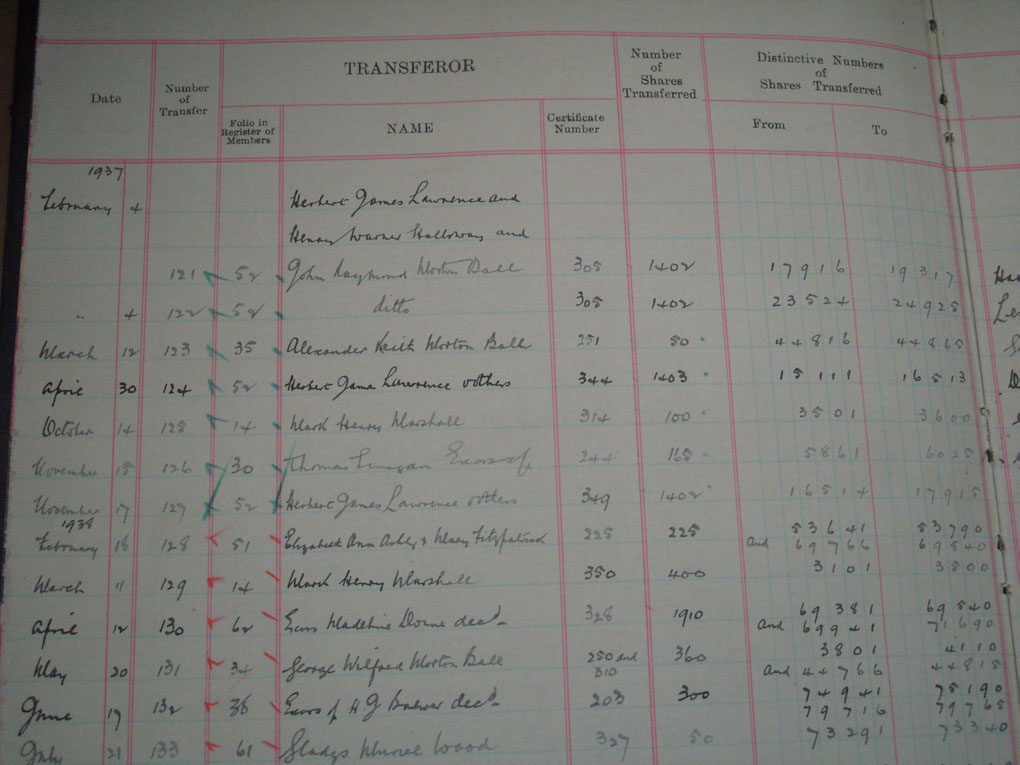 TRANSFEROR
Date
Number of Transfer
Folio in Register of Members
NAME
Certificate Number
Number of Shares Transferred
Distinctive Numbers of Shares Transferred
From
To
1937
February 4 Herbert James Lawrence and
Henry Warner Halloway and
121 52 John Raymond Morton Ball 305 1402 17916 19317
" 4 122 52 ditto 305 1402 23524 24925
March 12 123 35 Alexander Keith Morton Ball 251 50 44816 44865
April 30 124 52 Herbert James Lawrence & others 344 1403 15111 16513
October 14 125 14 Mark Henry Marshall 314 100 3501 3600
November 15 126 30 Thomas Exors of 244 165 5861 6025
November 17 127 52 Herbert James Lawrence & others 349 1402 16514 17915
1938
February 18 128 51 Elizabeth Ann Ashby & Mary Fitzpatrick 225 225 53641 53790
and 69766 69840
March 11 129 14 Mark Henry Marshall 350 400 3101 3500
April 12 130 62 Exors Madeline Dorne decd 328 1910 69381 69540
and 69941 71690
May 20 131 34 George Wilfred Morton Ball 250 and 310 360 3801 4110
and 44766 44815
June 17 132 36 Exors of H G decd 203 300 74941 75190
79716 79765
July 21 133 61 Gladys Muriel Wood 327 50 73291 73340